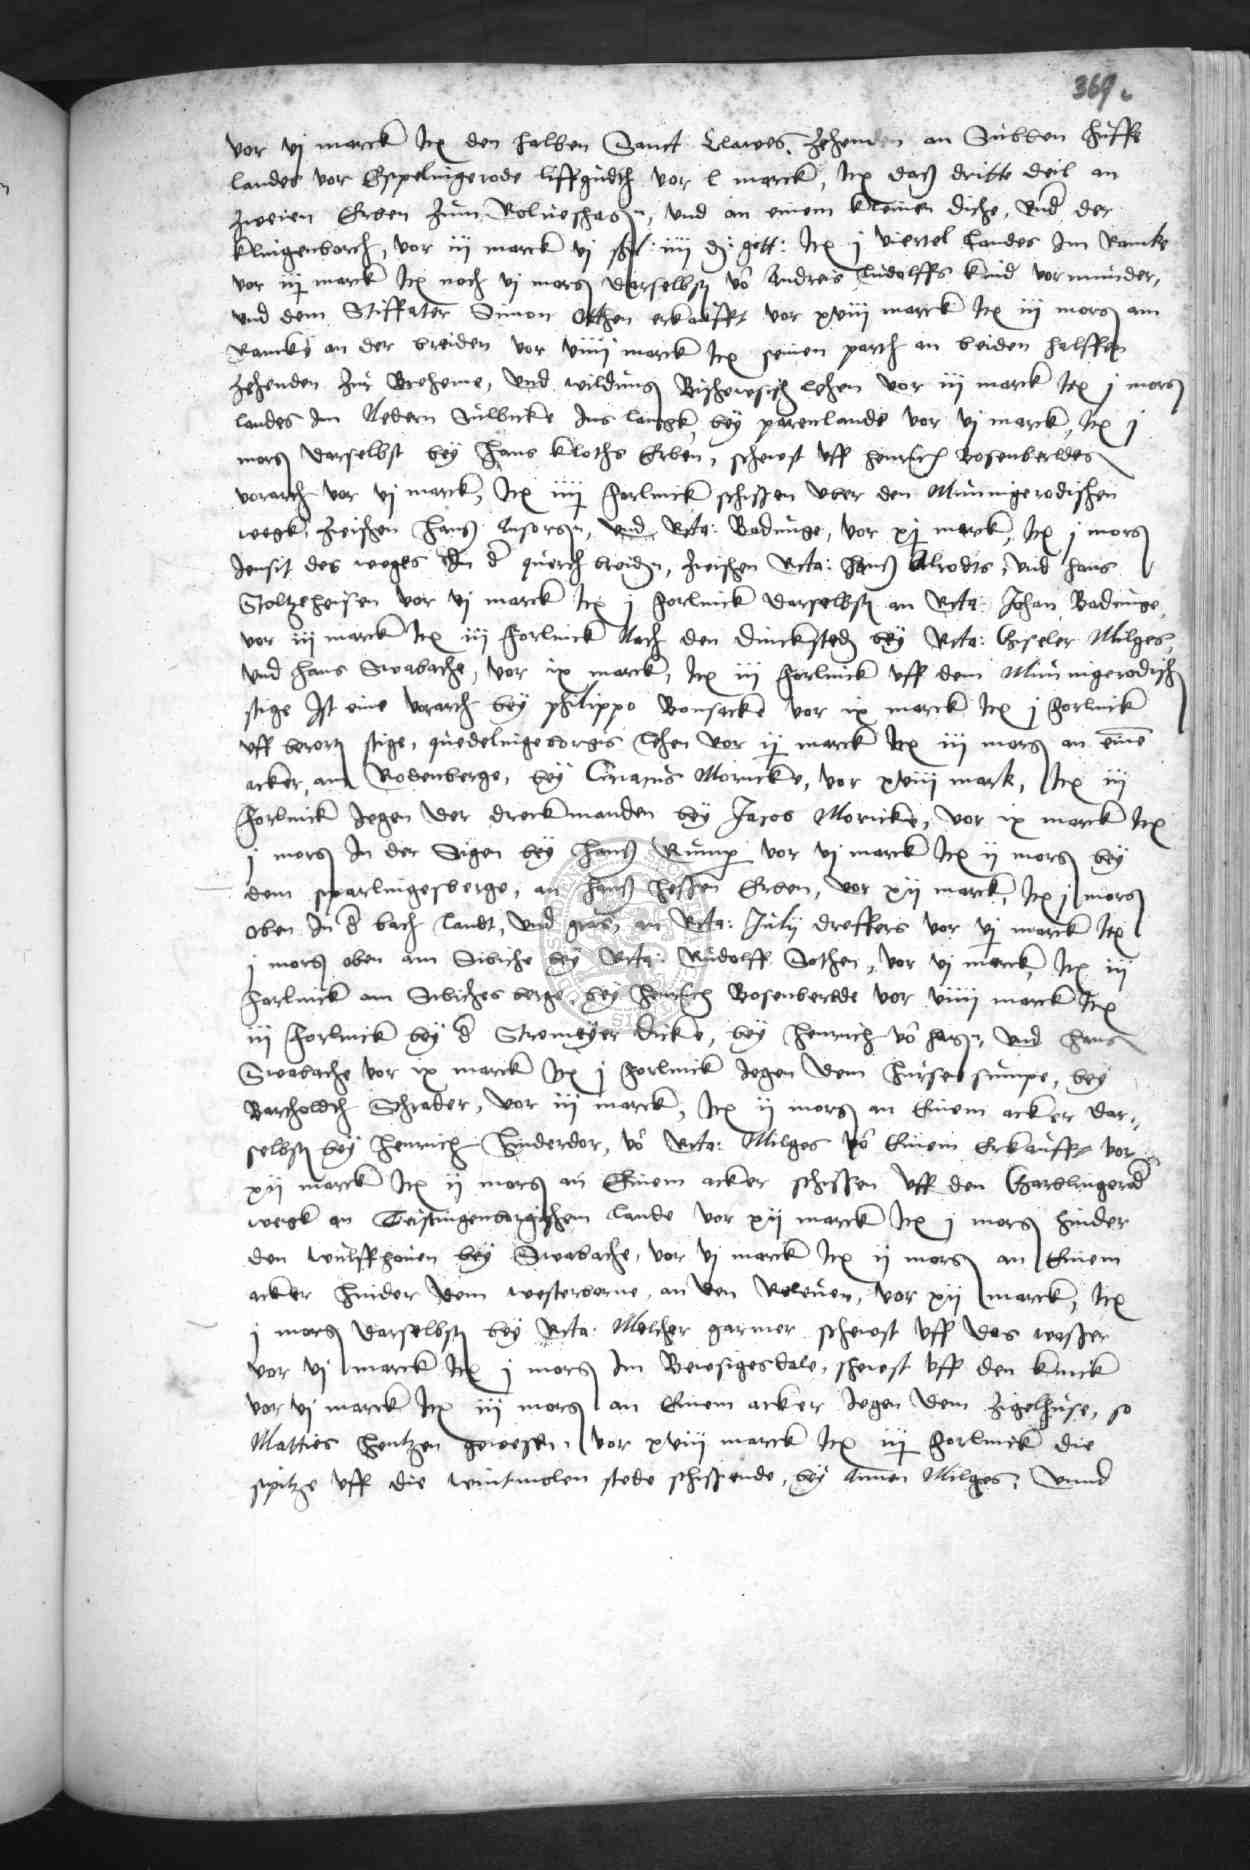 369.
vor vj marck Itẽ den halben Sanct Clawes Zehenden an Subben huffe
landes vor Espelingerode liffgudth vor l marck, Itẽ daß dritte deil an
zweien Erben zum Rolueshagẽ, vnd an einem kleinen diche, Vnd der
klingenborch, vor iij marck vj ßhil: iiij ₰: gott: Itẽ j viertel Landes Im Ramke
vor iij marck Itẽ noch vj morg darselbst võ Andreis Ludolffs kind vormunder,
vnd dem Stiffater Simon Otthen erkaufft vor xviij marck Itẽ iij morg am
Ramke an der breiden vor viiij marck Itẽ seinen parth an beiden halffen
Zehenden zur Breheme, vnd wildung Bischowisch lehen vor iij marck Itẽ j morg
landes im Nedern Sulbicke Ins langk, bey parenlande vor vj marck, Itẽ j
morg darselbst bey Hans kloths Erben, scheust vff Henrich Bosenberdes
vorarth vor vj marck, Itẽ iiij Forlinck schissen vber den Minnigerodischen
wegk, zwischen Hans Ansorgẽ, vnd Rcta: Badunge, vor xj marck, Itẽ j morg
Jensit des weges In d querch breidẽ, zwischen Rcta: Hans Alrodts, vnd Hans
Stoltzeheisen vor vj marck Itẽ j Forlinck darselbst an Rcta: Johan Badunge,
vor iij marck Itẽ iij Forlinck Nach den dincksted bey Rcta: Giseler Milges,
vnd Hans Swabache, vor ix marck, Itẽ iij Forlinck vff dem Minnigerodisch
stige Ist eine vorarth bey Philippo Bonsacke vor ix marck Itẽ j Forlinck
vff berort stige, quedelingeborgis lehen vor ij marck Itẽ iij morg an einẽ
acker, am Rodenberge, bey Ciriacus Moricke, vor xviij mark, Itẽ iij
Forlinck Jegen der dreckmanden bey Jacob Moricke, vor ix marck Itẽ
j morg In der Sigen bey Hans Rump vor vj marck Itẽ ij morg bey
dem sparlingesberge, an Hans Hessen Erben, vor xij marck, Itẽ j morg
oben In d bach landt, vnd gras, an Rcta: July dreffers vor vj marck Itẽ
j morg oben am Sibiche bey Rcta: Rudolff Sothen, vor vj marck, Itẽ iij
Forlinck am Sibichesberge, bey Henrich Bosenberde vor viiij marck Itẽ
iij Forlinck bey d Stromeyer dicke, bey Henrich võ Hagẽ, vnd Hans
Swabache vor ix marck Itẽ j Forlinck Jegen dem hursessumpe, bey
Bartholdth Schrader, vor iij marck, Itẽ ij morg an Einem acker dar-
selbst bey Henrich Hinderdor, võ Rcta: Milges võ Einem Erkaufft vor
xij marck Itẽ ij morg an Einem acker schissen vff den Garblingerod
wegk an Teistingenborgischem lande vor xij marck Itẽ j morg hinder
den wulffhoiuen bey Swabache, vor vj marck Itẽ ij morg an Einem
acker hinder dem westerborne, an den Releuen, vor xij marck, Itẽ
j morg darselbst bey Rcta: Melcher garmer scheust vff das wasser
vor vj marck Itẽ j morg Im Bewsigesdale, scheust vff den knick
vor vj marck Itẽ iij morg an Einem acker Jegen dem zigelhuse, so
Matties Hentzen gewesen, vor xviij marck Itẽ iij Forlinck die
spitze vff die wintmolen stede schissende, bey Annen Milges, vnnd